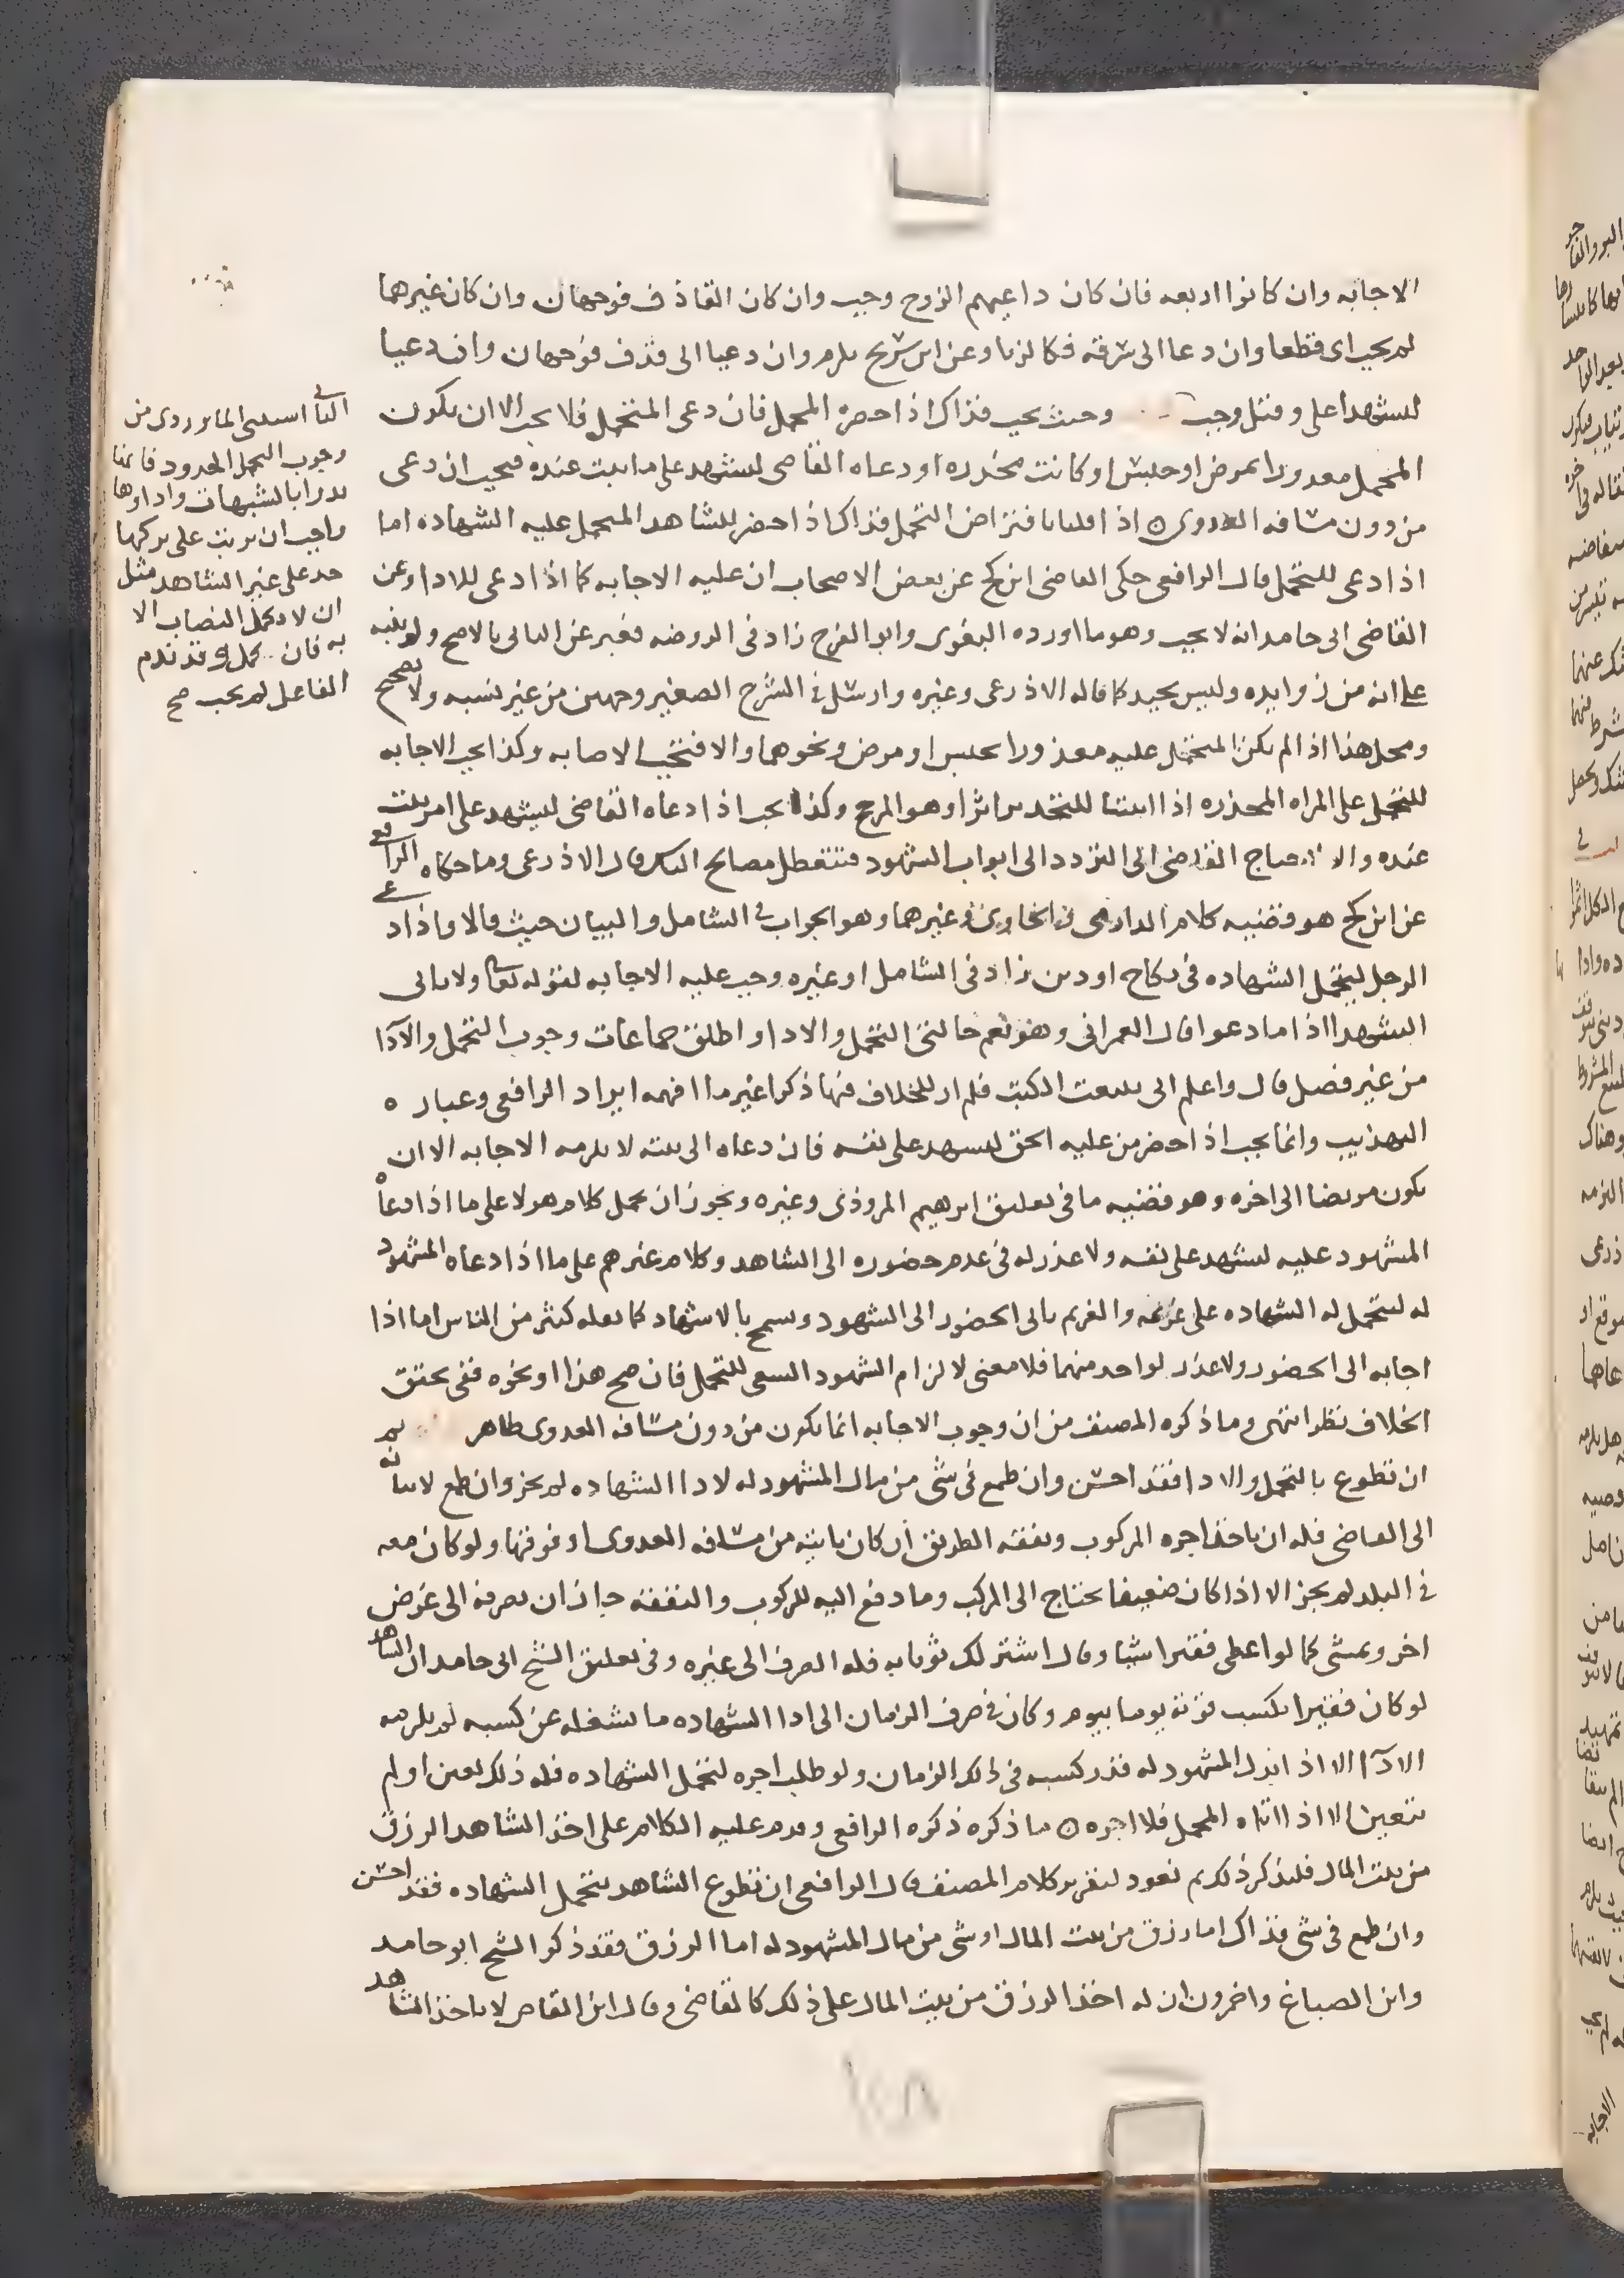 الاجابه وان كانوا اربعه فان كان داعيهم الزوج وجب وان كان القاذف فوجهان وان كان غيرهما
لم يجب اى قطعا وان دعا الى سرقه فكالزنا وعن ابن سريج يلزم وان دعيا الى قذف فوجهان وان دعيا
ليشهدا على وقتل وجب وحيث يجب فذاك اذا احضره المتحمل فان دعى المتحمل فلا يجب الا ان يكون
المتحمل معذورا بمرض او حبس او كانت مخدره او دعاه القاضى ليشهد على ما يثبت عنده فيجيب ان دعى
من دون مسافه العدوى ه اذا قلنا بافتراض التحمل فذاك اذا حضر للشاهد المتحمل عليه الشهاده اما
اذا دعى للتحمل قال الرافعى حكى القاضى ابن كج عن بعض الاصحاب ان عليه الاجابه كما اذا دعى للادا وعن
القاضى ابى حامد انه لا يجب وهو ما اورده البغوى وابو الفرج زاد فى الروضه فعبر عن الثانى بالاصح ولم ينبه
على انه من زوايده وليس بجيد كما قاله الاذرعى وغيره وارسل فى الشرح الصغير وجهين من غير نسبه ولا تصحيح
ومحل هذا اذا لم يكن المتحمل عليه معذورا بحبس او مرض ونحوهما والا فتجب الاجابه وكذا يجب الاجابه
للتحمل على المراه المخدره اذا اثبتنا للتخدير اثرا وهو المرجح وكذا يجب اذا دعاه القاضى ليشهد على امر يثبت
عنده والا لاحتاج القاضى الى التردد الى ابواب الشهود فتتعطل مصالح الناس قال الاذرعى وما حكاه الرافعى
عن ابن كج هو قضيه كلام الدارمى فى الحاوى وغيرهما وهو الجواب فى الشامل والبيان حيث قالا واذا دعى
الرجل ليتحمل الشهاده فى نكاح او دين زاد فى الشامل او غيره وجب عليه الاجابه لقوله تعالى ولا يابى
الشهدا اذا ما دعوا قال العمرانى وهو يعم حالتى التحمل والادا واطلق جماعات وجوب التحمل والادآ
من غير فصل قال واعلم انى تتبعت الكتب فلم ار للخلاف فيها ذكرا غير ما افهمه ايراد الرافعى وعباره
التهذيب وانما يجب اذا حضر من عليه الحق ليشهد على نفسه فان دعاه الى بيته لا يلزمه الاجابه الا ان
يكون مريضا الى اخره وهو قضيه ما فى تعليق ابرهيم المروذى وغيره ويجوز ان يحمل كلام هولا على ما اذا دعاه
المشهود عليه ليشهد على نفسه ولا عذر له فى عدم حضوره الى الشاهد وكلام غيرهم على ما اذا دعاه المشهود
له ليتحمل له الشهاده على غريمه والغريم يابى الحضور الى الشهود ويسمح بالاشهاد كما يفعله كثير من الناس اما اذا
اجابه الى الحضور ولا عذر لواحد منهما فلا معنى لالزام الشهود السعى للتحمل فان صح هذا او نحوه ففى تحقق
الخلاف نظر انتهى وما ذكره المصنف من ان وجوب الاجابه انما يكون من دون مسافه العدوى ظاهر ثم
ان تطوع بالتحمل والادا فقد احسن وان طمع فى شى من مال المشهود له لادا الشهاده لم يجز وان طمع لاتيانه
الى القاضى فله ان ياخذ اجره المركوب ونفقه الطريق ان كان ياتيه من مسافه العدوى او فوقها ولو كان معه
فى البلد لم يجز الا اذا كان ضعيفا يحتاج الى المركب وما دفع اليه للركوب والنفقه جاز ان يصرفه الى غرض
اخر ويمشى كما لو اعطى فقيرا شيا وقال اشتر لك ثوبا به فله الصرف الى غيره وفى تعليق الشيخ ابى حامد ان الشاهد
لو كان فقيرا يكسب قوته يوما بيوم وكان فى صرف الزمان الى ادا الشهاده ما يشغله عن كسبه لم يلزمه
الادآ الا اذا بذل المشهود له قدر كسبه فى ذلك الزمان ولو طلب اجره لتحمل الشهاده فله ذلك تعين او لم
يتعين الا اذا اتاه المحمل فلا اجره ه ما ذكره ذكره الرافعى وقدم عليه الكلام على اخذ الشاهد الرزق
من بيت المال فليذكر ذلك ثم نعود لتقرير كلام المصنف قال الرافعى ان تطوع الشاهد بتحمل الشهاده فقد احسن
وان طمع فى شى فذاك اما رزق من بيت المال او شى من مال المشهود له اما الرزق فقد ذكر الشيخ ابو حامد
وابن الصباغ واخرون ان له اخذ الرزق من بيت المال على ذلك كالقاضى وقال ابن القاص لا ياخذ الشاهد
الثانى استثنى الماوردى من
وجوب التحمل الحدود فانها
تدرا بالشبهات واداوها
واجب ان ترتب على تركها
حد على غير الشاهد مثل
ان لا يكمل النصاب الا
به فان كمل وقد ندم
الفاعل لم يجب صح